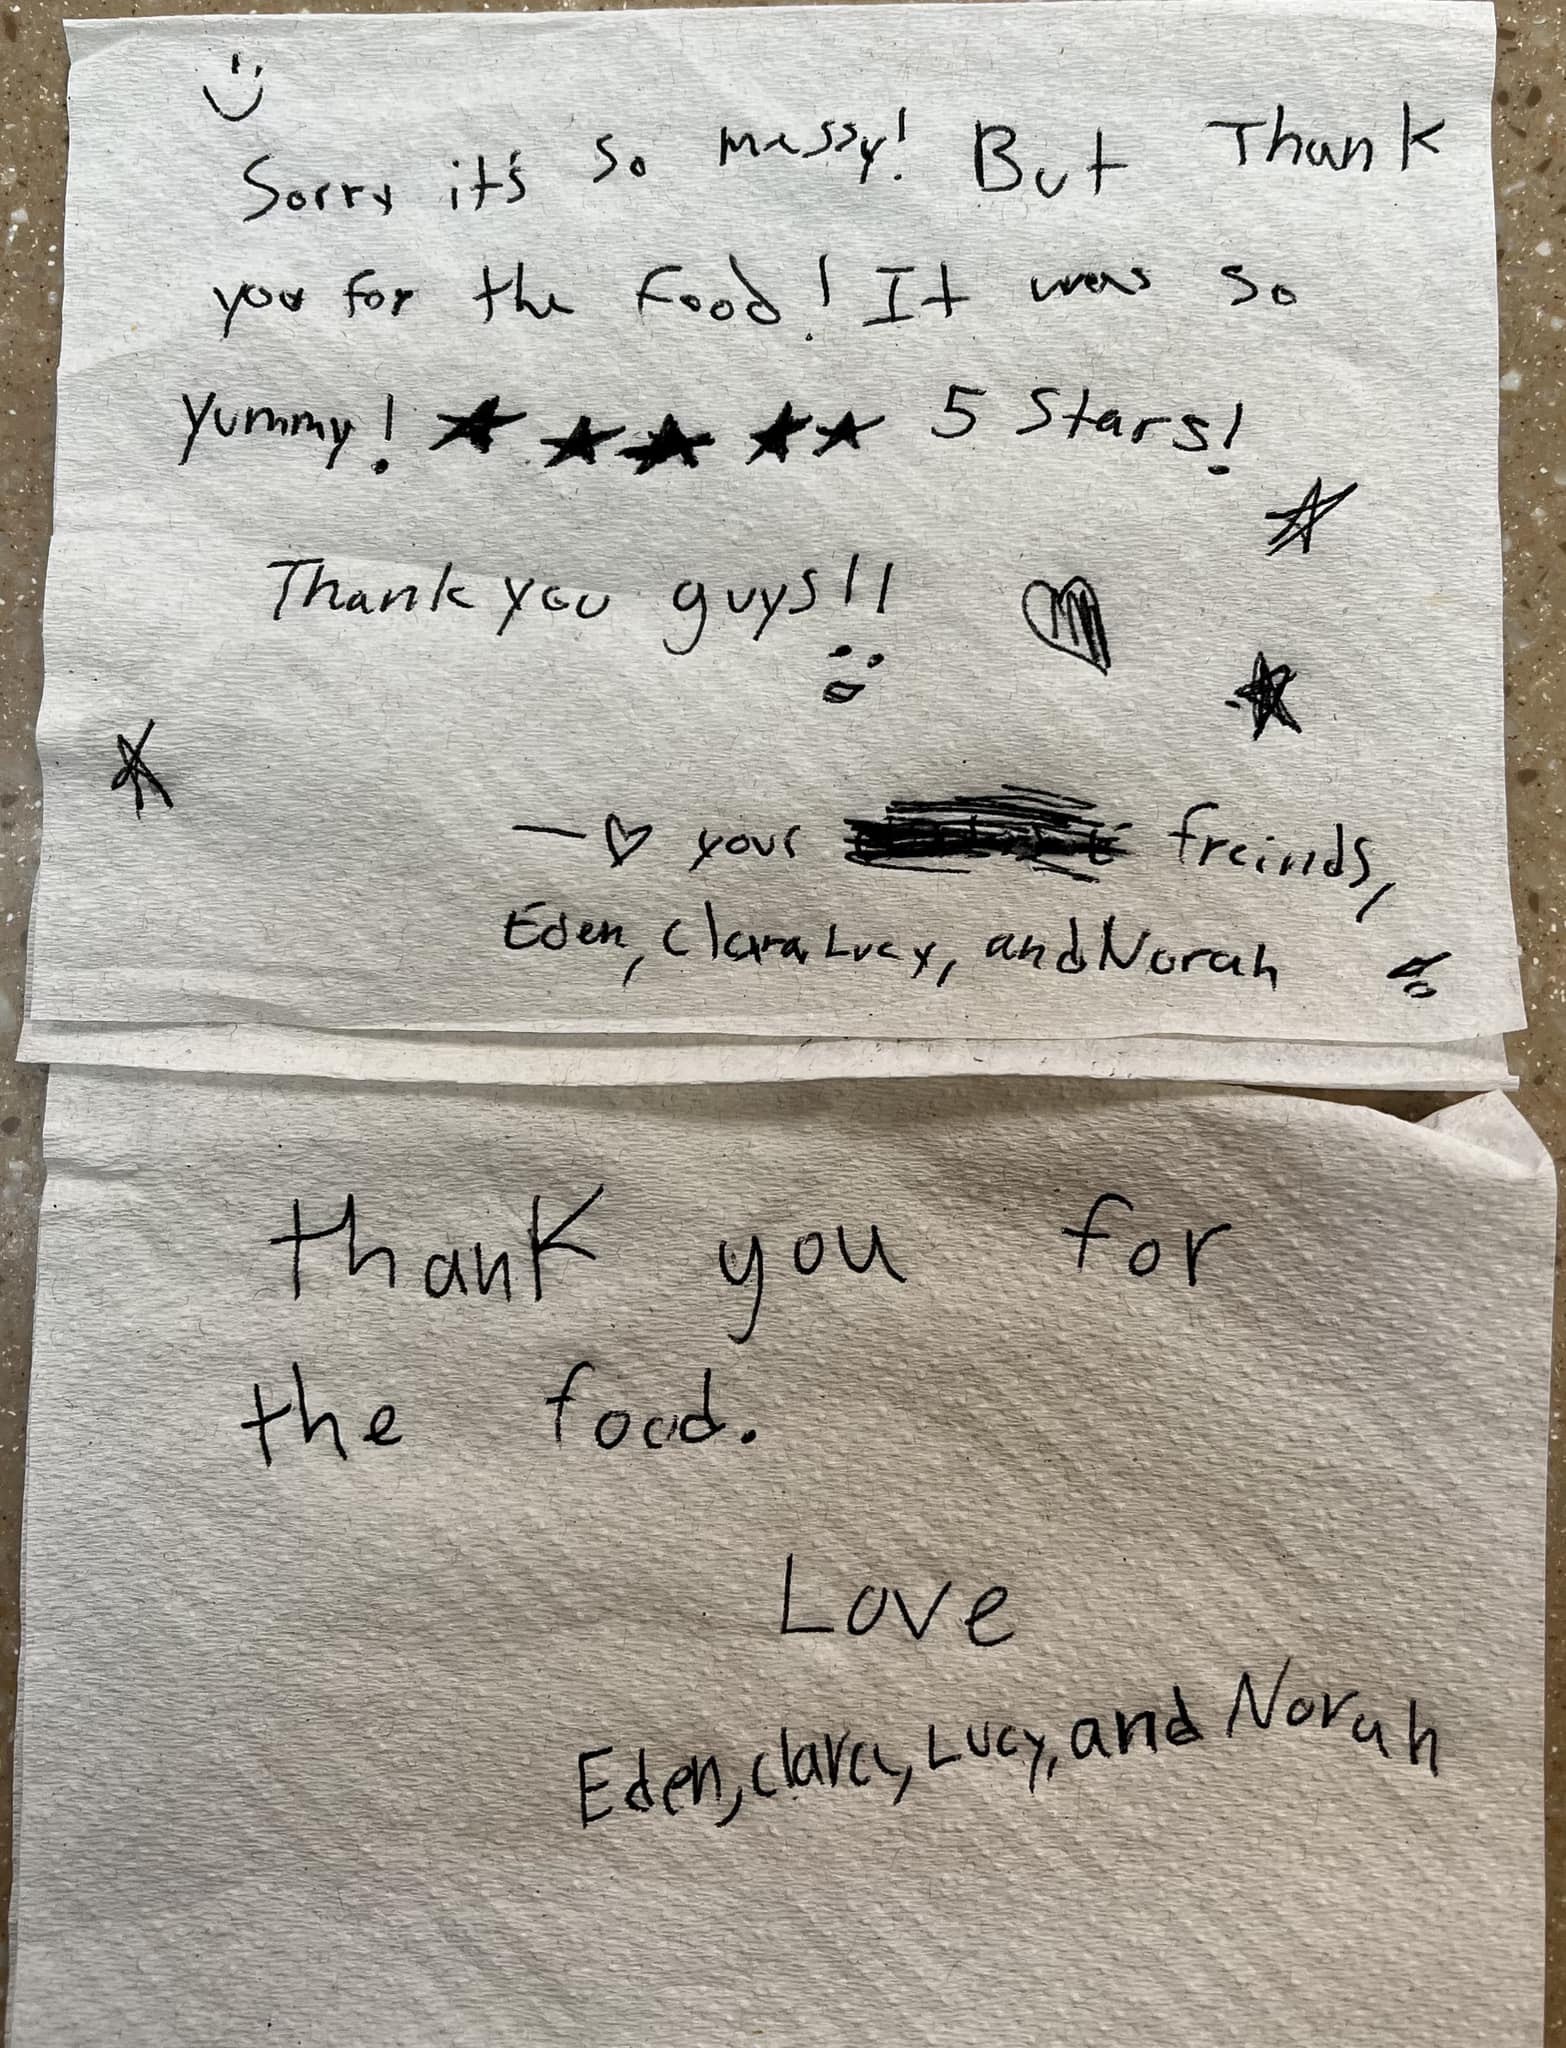 Sorry it's so messy! But Thank
you for the food! It was so
yummy! ★★★★★ 5 Stars!
Thank you guys!!!
— ♡ your freinds,
Eden, Clara, Lucy, and Norah
thank you for
the food.
Love
Eden, Clara, Lucy, and Norah